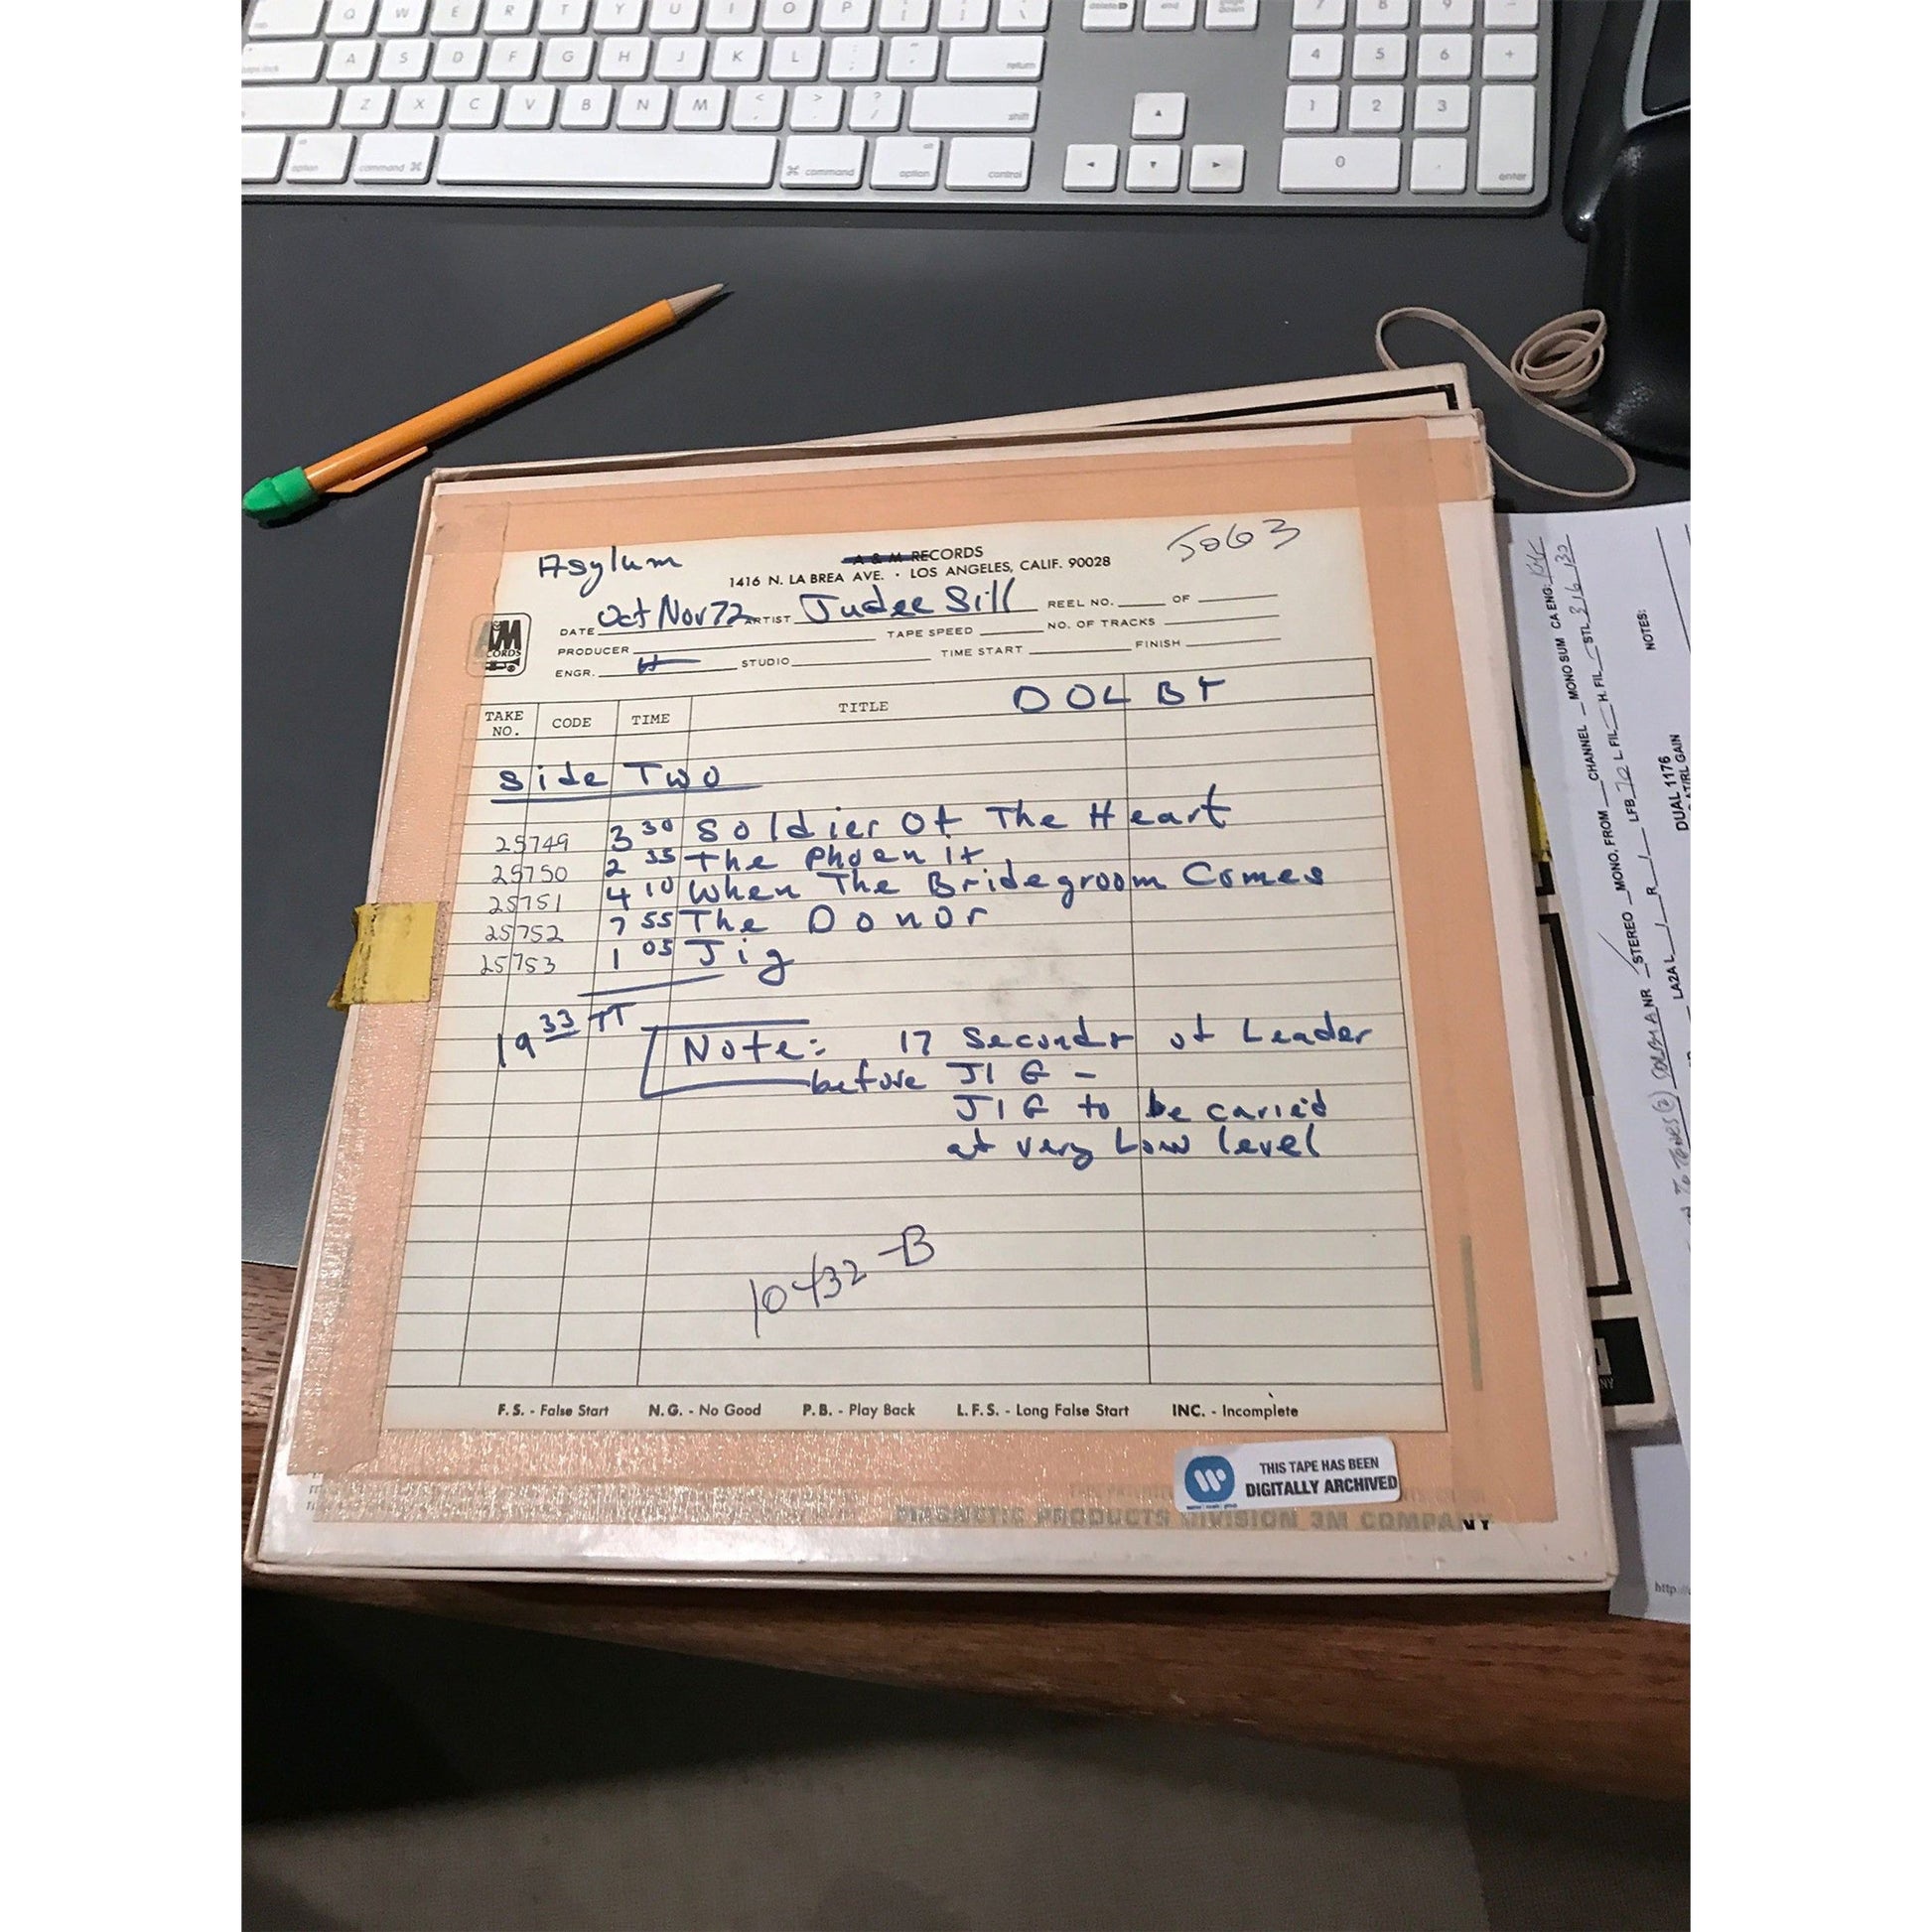 Q W E R T Y U I O P
delete end page down
7 8 9 -
A S D F G H J K L return
4 5 6 +
Z X C V B N M shift
1 2 3
option command ⌘ ⌘ command option control
0 . enter
Asylum
A & M RECORDS
5063
1416 N. LA BREA AVE. · LOS ANGELES, CALIF. 90028
DATE Oct Nov 72 ARTIST Judee Sill REEL NO. OF
PRODUCER TAPE SPEED NO. OF TRACKS
ENGR. H STUDIO TIME START FINISH
DOLBY
TAKE NO. CODE TIME TITLE
Side Two
25749 3 30 Soldier Of The Heart
25750 2 35 The Phoenix
25751 4 10 When The Bridegroom Comes
25752 7 55 The Donor
25753 1 05 Jig
19 33 TT
Note: 17 Seconds of Leader
before JIG -
JIG to be carried
at very Low level
10432-B
F. S. - False Start N. G. - No Good P. B. - Play Back L. F. S. - Long False Start INC. - Incomplete
THIS TAPE HAS BEEN
DIGITALLY ARCHIVED
MAGNETIC PRODUCTS DIVISION 3M COMPANY
NR STEREO MONO, FROM CHANNEL MONO SUM CA ENG:
LFB L FIL H. FIL STL
LA2A L R
NOTES:
DUAL 1176
http